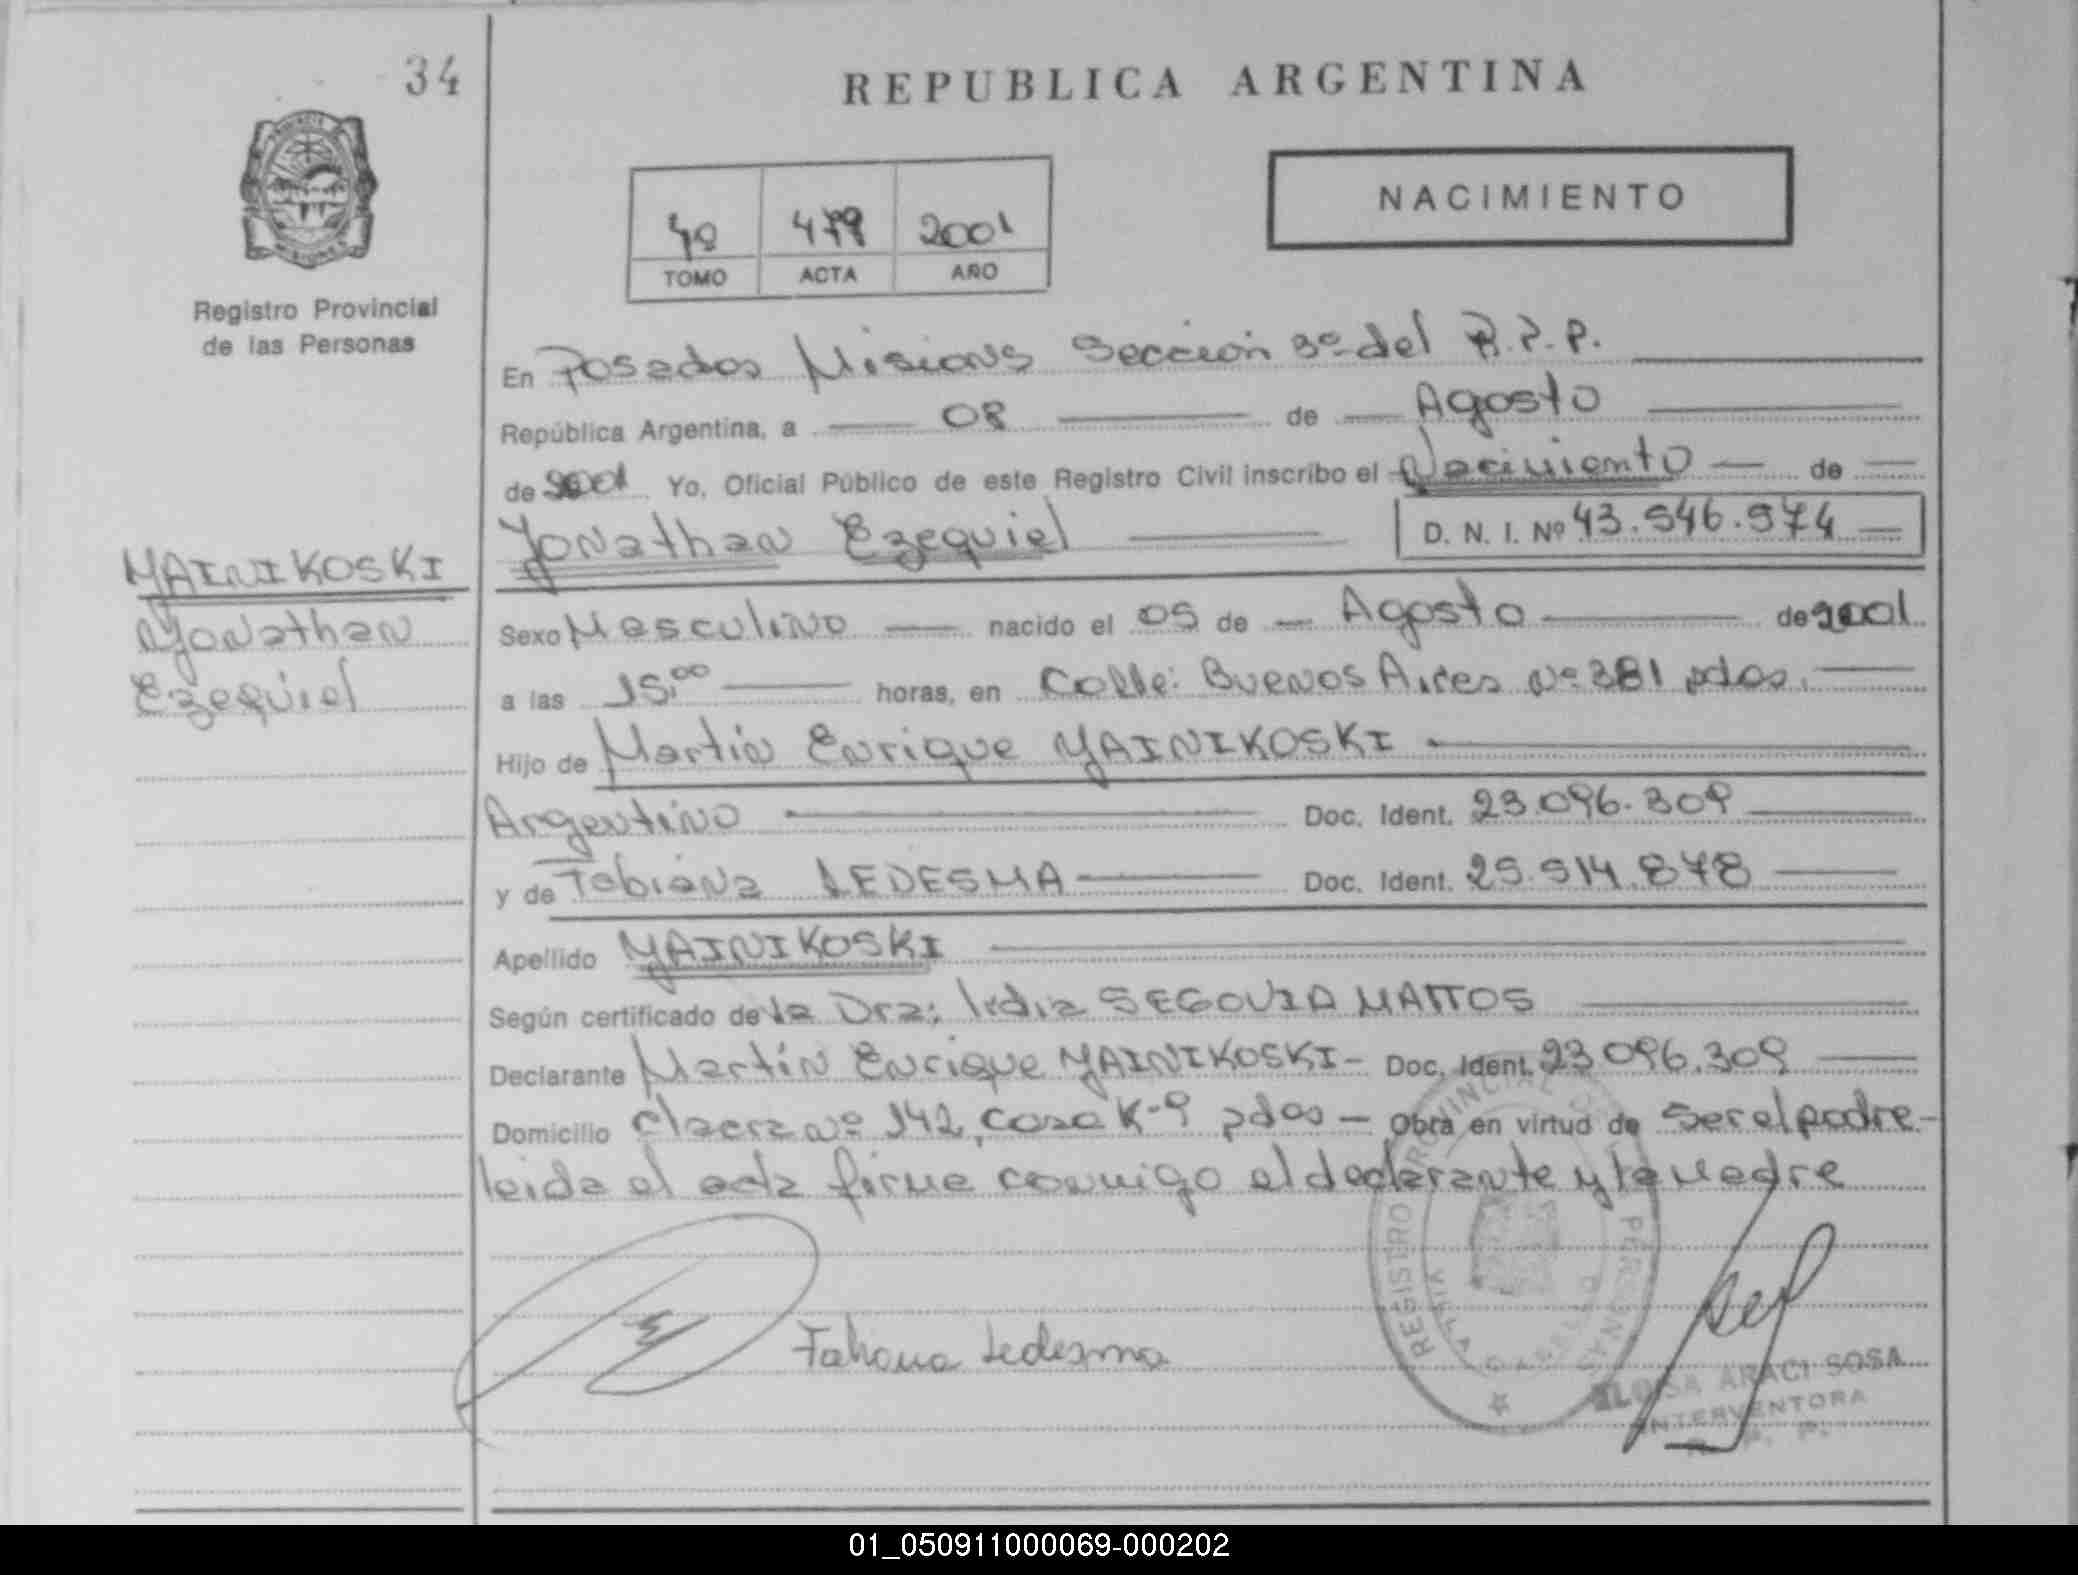 34
REPUBLICA ARGENTINA
NACIMIENTO
479 2001
TOMO ACTA AÑO
Registro Provincial
de las Personas
En Posadas Misiones Sección 3º del R.P.P.
República Argentina, a 08 de Agosto
de 2001 Yo, Oficial Público de este Registro Civil inscribo el Nacimiento de
Yonathan Ezequiel D. N. I. Nº 43.546.974
YAINIKOSKI
Yonathan
Ezequiel
Sexo Masculino nacido el 05 de Agosto de 2001
a las 15,00 horas, en Calle: Buenos Aires Nº 381 pdas.
Hijo de Martín Enrique YAINIKOSKI
Argentino Doc. Ident. 23.096.309
y de Fabiana LEDESMA Doc. Ident. 25.514.878
Apellido YAINIKOSKI
Según certificado de la Dra: Lidia SEGOVIA MATTOS
Declarante Martín Enrique YAINIKOSKI - Doc. Ident. 23.096.309
Domicilio Chacra Nº 142, casa K-9 pdas - Obra en virtud de ser el padre.-
leida el acta firma conmigo el declarante y la madre
Fabiana Ledesma
REGISTRO PROVINCIAL DE PERSONAS
VILLA CABELLO
ELOISA ARACI SOSA
INTERVENTORA
R. P. P.
01_050911000069-000202